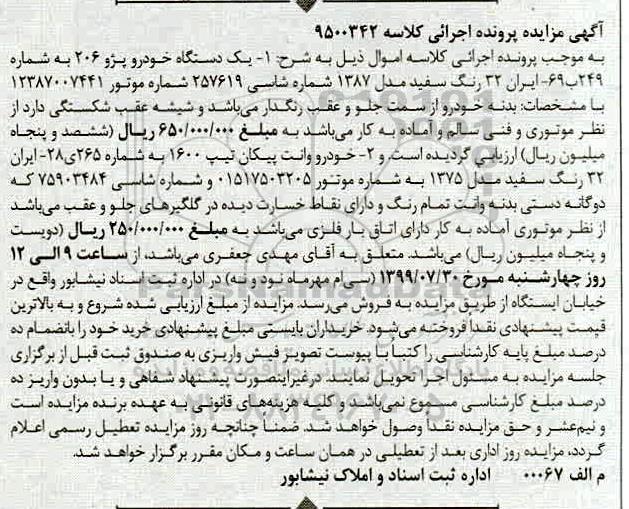 آگهی مزایده پرونده اجرائی کلاسه ۹۵۰۰۳۴۲
به موجب پرونده اجرائی کلاسه اموال ذیل به شرح: ۱- یک دستگاه خودرو پژو ۲۰۶ به شماره
۲۴۹ب۶۹- ایران ۳۲ رنگ سفید مدل ۱۳۸۷ شماره شاسی ۲۵۷۶۱۹ شماره موتور ۱۲۳۸۷۰۰۷۴۴۱
با مشخصات: بدنه خودرو از سمت جلو و عقب رنگدار می‌باشد و شیشه عقب شکستگی دارد از
نظر موتوری و فنی سالم و آماده به کار می‌باشد به مبلغ ۶۵۰/۰۰۰/۰۰۰ ریال (ششصد و پنجاه
میلیون ریال) ارزیابی گردیده است. و ۲- خودرو وانت پیکان تیپ ۱۶۰۰ به شماره ۲۶۵ی۲۸- ایران
۳۲ رنگ سفید مدل ۱۳۷۵ به شماره موتور ۰۱۵۱۷۵۰۳۲۰۵ و شماره شاسی ۷۵۹۰۳۴۸۴ که
دوگانه دستی بدنه وانت تمام رنگ و دارای نقاط خسارت دیده در گلگیرهای جلو و عقب می‌باشد
از نظر موتوری آماده به کار دارای اتاق بار فلزی می‌باشد به مبلغ ۲۵۰/۰۰۰/۰۰۰ ریال (دویست
و پنجاه میلیون ریال) می‌باشد. متعلق به آقای مهدی جعفری می‌باشد، از ساعت ۹ الی ۱۲
روز چهارشنبه مورخ ۱۳۹۹/۰۷/۳۰ (سی‌ام مهرماه نود و نه) در اداره ثبت اسناد نیشابور واقع در
خیابان ایستگاه از طریق مزایده به فروش می‌رسد. مزایده از مبلغ ارزیابی شده شروع و به بالاترین
قیمت پیشنهادی نقدا فروخته می‌شود. خریداران بایستی مبلغ پیشنهادی خرید خود را بانضمام ده
درصد مبلغ پایه کارشناسی را کتبا با پیوست تصویر فیش واریزی به صندوق ثبت قبل از برگزاری
جلسه مزایده به مسئول اجرا تحویل نمایند. درغیراینصورت پیشنهاد شفاهی و یا بدون واریز ده
درصد مبلغ کارشناسی مسموع نمی‌باشد و کلیه هزینه‌های قانونی به عهده برنده مزایده است
و نیم‌عشر و حق مزایده نقدا وصول خواهد شد. ضمنا چنانچه روز مزایده تعطیل رسمی اعلام
گردد، مزایده روز اداری بعد از تعطیلی در همان ساعت و مکان مقرر برگزار خواهد شد.
م الف ۰۰۰۶۷ اداره ثبت اسناد و املاک نیشابور